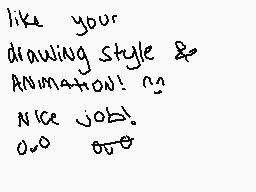 like your
drawing style &
ANiMATiON! ^^
Nice job!
OvO OvO